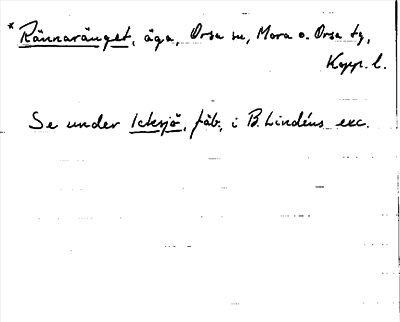 * Rännaränget, äga, Orsa sn, Mora o. Orsa tg,
Kopp. l.
Se under Icksjö, fäb, i B. Lindéns exc.